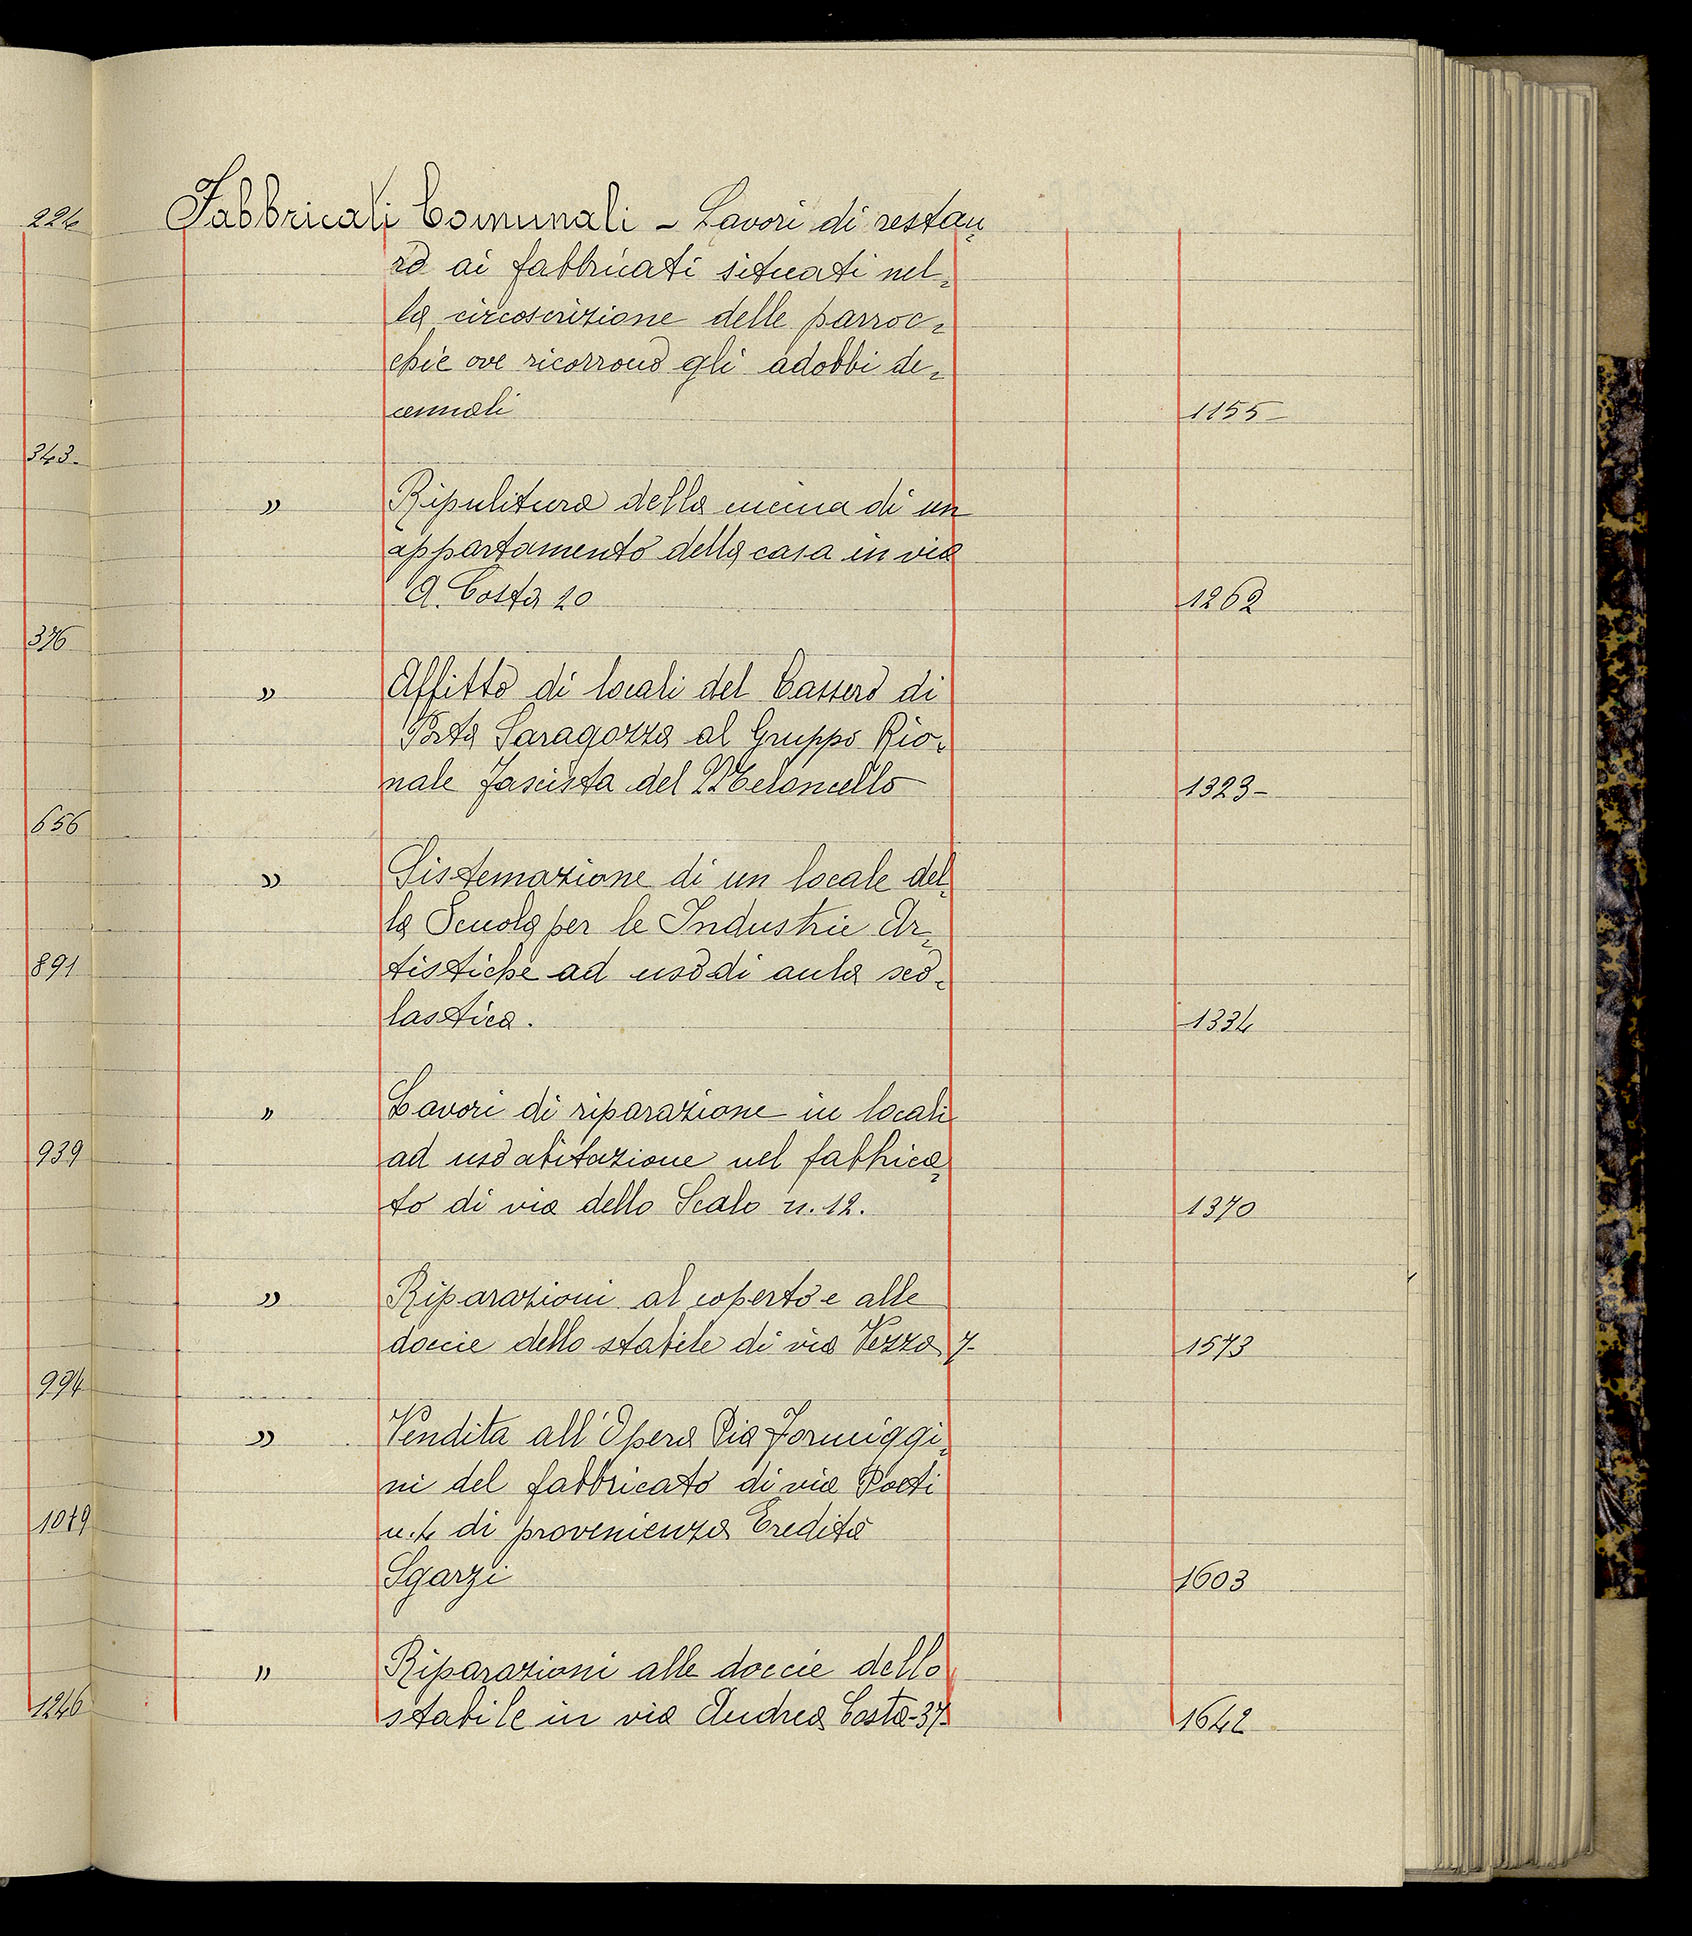 224
343
376
656
891
939
994
1019
1246
Fabbricati Comunali - Lavori di restau=
ro ai fabbricati situati nel=
la circoscrizione delle parroc=
chie ove ricorrono gli adobbi de=
cennali 1155
" Ripulitura della cucina di un
appartamento della casa in via
A. Costa 20 1262
" Affitto di locali del Cassero di
Porta Saragozza al Gruppo Rio=
nale Fascista del Meloncello 1323
" Sistemazione di un locale del=
la Scuola per le Industrie Ar=
tistiche ad uso di aula sco=
lastica. 1334
" Lavori di riparazione in locali
ad uso abitazione nel fabbrica=
to di via dello Scalo n. 12. 1370
" Riparazioni al coperto e alle
doccie dello stabile di via Pezza 7 1573
" Vendita all'Opera Pia Formiggi=
ni del fabbricato di via Poeti
n. 4 di provenienza Eredità
Sgarzi 1603
" Riparazioni alle doccie dello
stabile in via Andrea Costa-37- 1642